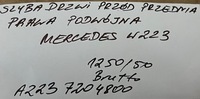 SZYBA DRZWI PRZÓD PRZEDNIA
PRAWA PODWÓJNA
MERCEDES W223
1250/50
Brutto
A223 7204800